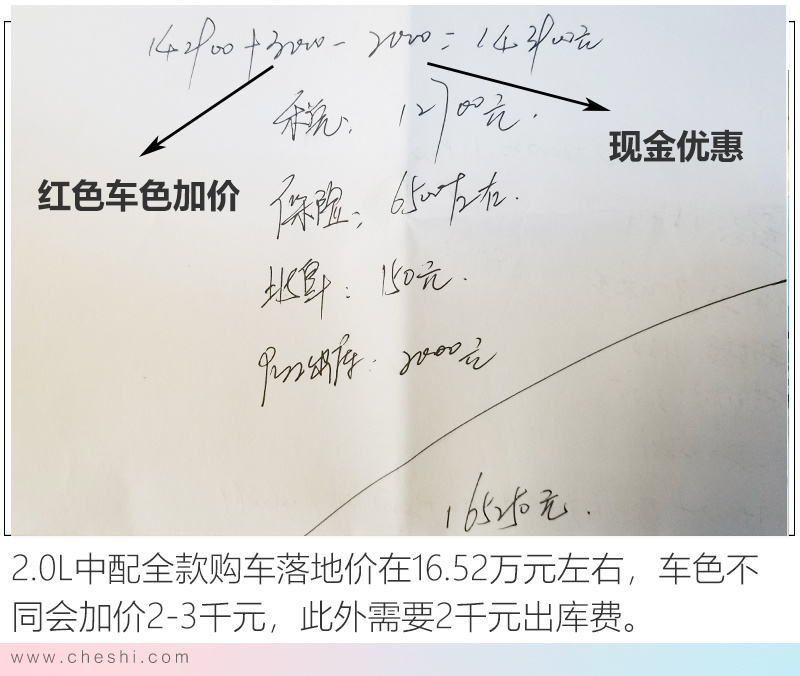 142900+3000-2000=143900元
税: 12700元.
红色车色加价
现金优惠
保险: 6500左右.
: 150元.
出库: 2000元
165250元.
2.0L中配全款购车落地价在16.52万元左右，车色不
同会加价2-3千元，此外需要2千元出库费。
www.cheshi.com